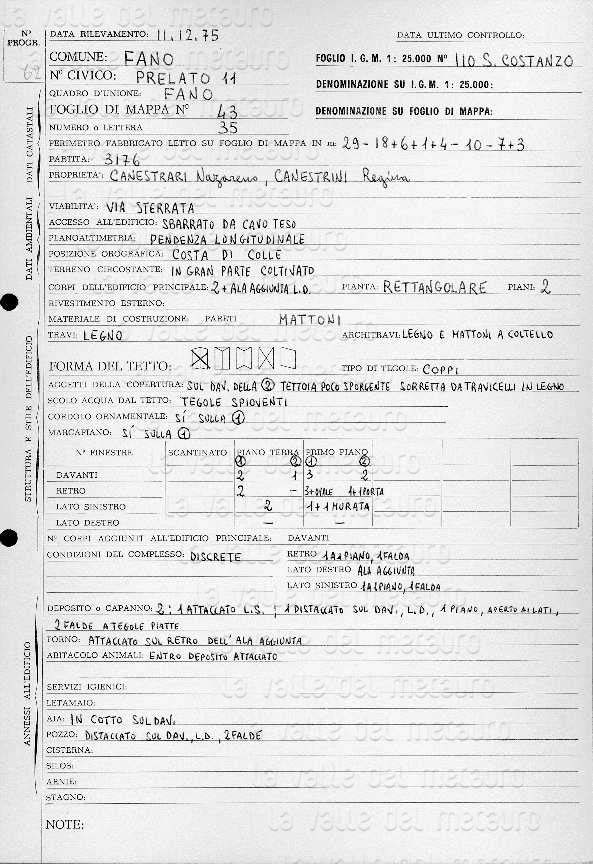 Nº PROGR. DATA RILEVAMENTO: 11.12.75 DATA ULTIMO CONTROLLO:
COMUNE: FANO FOGLIO I. G. M. 1 : 25.000 Nº 110 S. COSTANZO
Nº CIVICO: PRELATO 11 DENOMINAZIONE SU I. G. M. 1 : 25.000:
QUADRO D'UNIONE: FANO
FOGLIO DI MAPPA Nº 43 DENOMINAZIONE SU FOGLIO DI MAPPA:
NUMERO o LETTERA 35
PERIMETRO FABBRICATO LETTO SU FOGLIO DI MAPPA IN m: 29-18+6+1+4-10-7+3
PARTITA: 3176
PROPRIETA': CANESTRARI Nazareno, CANESTRINI Regina
DATI CATASTALI
VIABILITA': VIA STERRATA
ACCESSO ALL'EDIFICIO: SBARRATO DA CAVO TESO
PLANOALTIMETRIA: PENDENZA LONGITUDINALE
POSIZIONE OROGRAFICA: COSTA DI COLLE
TERRENO CIRCOSTANTE: IN GRAN PARTE COLTIVATO
DATI AMBIENTALI
CORPI DELL'EDIFICIO PRINCIPALE: 2 + ALA AGGIUNTA L.D. PIANTA: RETTANGOLARE PIANI: 2
RIVESTIMENTO ESTERNO:
MATERIALE DI COSTRUZIONE: PARETI MATTONI
TRAVI: LEGNO ARCHITRAVI: LEGNO E MATTONI A COLTELLO
FORMA DEL TETTO: TIPO DI TEGOLE: COPPI
AGGETTI DELLA COPERTURA: SUL DAV. DELLA 2 TETTOIA POCO SPORGENTE SORRETTA DA TRAVICELLI IN LEGNO
SCOLO ACQUA DAL TETTO: TEGOLE SPIOVENTI
CORDOLO ORNAMENTALE: SÍ SULLA 1
MARCAPIANO: SÍ SULLA 1
Nº FINESTRE SCANTINATO PIANO TERRA PRIMO PIANO
1 2 1 2
DAVANTI 2 1 3 2
RETRO 2 - 3+OVALE 1+1PORTA
LATO SINISTRO 2 1+1 MURATA
LATO DESTRO — —
STRUTTURA E STILE DELL'EDIFICIO
Nº CORPI AGGIUNTI ALL'EDIFICIO PRINCIPALE: DAVANTI
CONDIZIONI DEL COMPLESSO: DISCRETE RETRO 1 A 1 PIANO, 1 FALDA
LATO DESTRO ALA AGGIUNTA
LATO SINISTRO 1 A 1 PIANO, 1 FALDA
DEPOSITO o CAPANNO: 2: 1 ATTACCATO L.S.; 1 DISTACCATO SUL DAV., L.D., 1 PIANO, APERTO AI LATI,
2 FALDE A TEGOLE PIATTE
FORNO: ATTACCATO SUL RETRO DELL'ALA AGGIUNTA
ABITACOLO ANIMALI: ENTRO DEPOSITO ATTACCATO
SERVIZI IGIENICI:
LETAMAIO:
AJA: IN COTTO SUL DAV.
POZZO: DISTACCATO SUL DAV., L.D., 2 FALDE
CISTERNA:
SILOS:
ARNIE:
STAGNO:
ANNESSI ALL'EDIFICIO
NOTE:
La valle del metauro